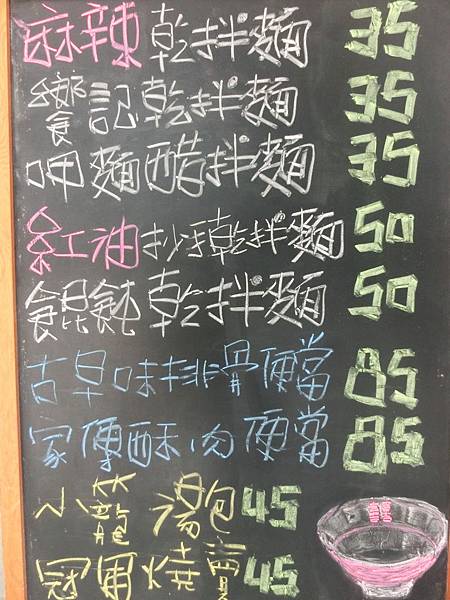 麻辣乾拌麵 35
饗記乾拌麵 35
呷麵醋拌麵 35
紅油抄手乾拌麵 50
餛飩乾拌麵 50
古早味排骨便當 85
家傳酥肉便當 85
小籠湯包 45
冠軍燒賣 45